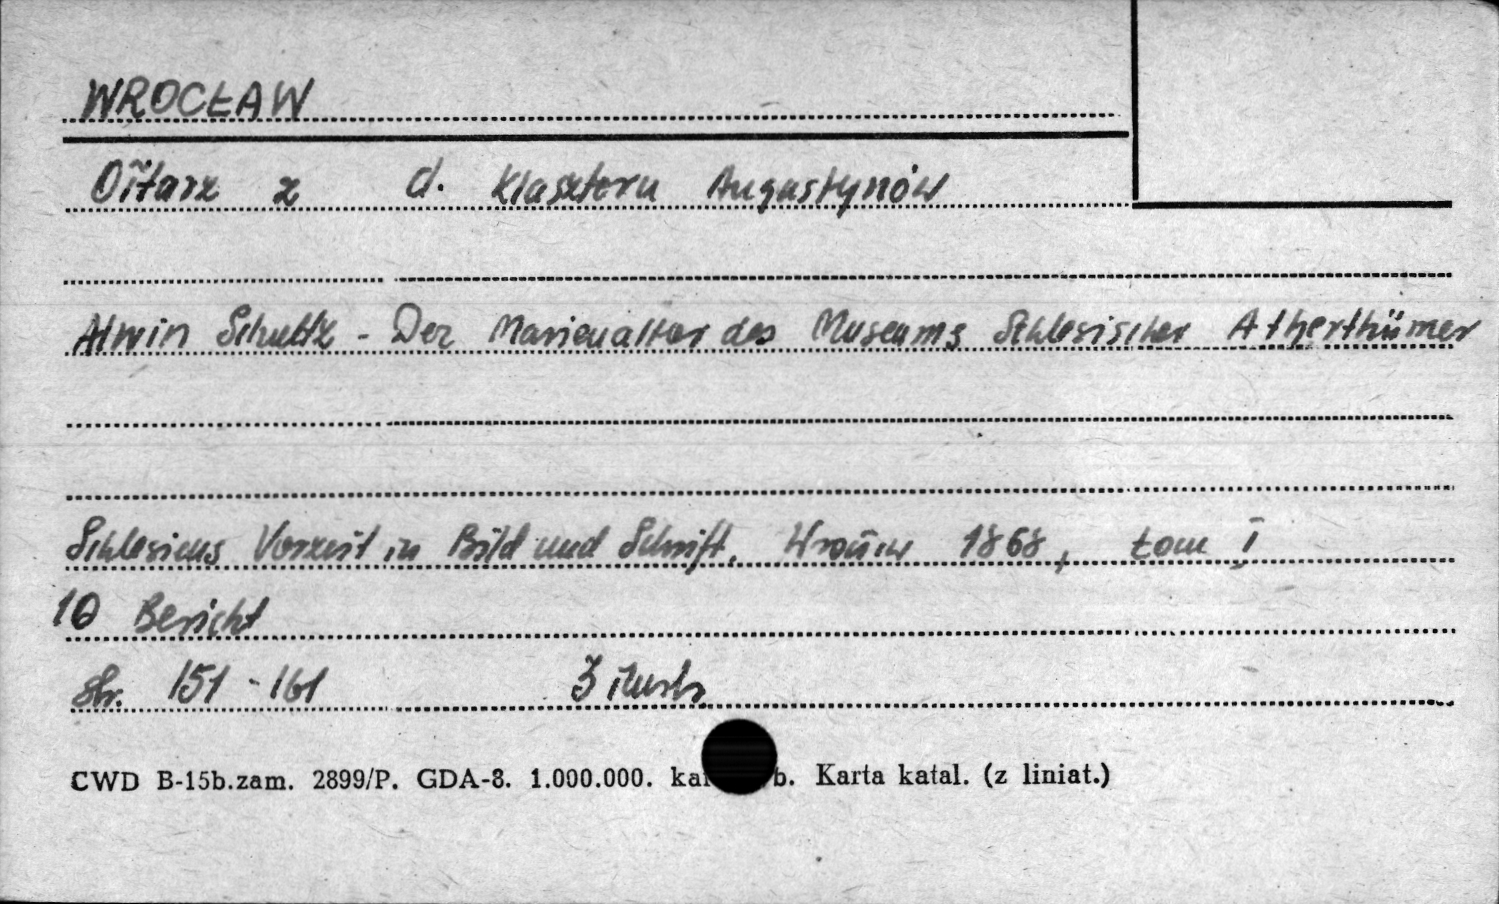 WROCŁAW
Ołtarz z d. Klasztoru Augustynów
Alwin Schultz - Der Marienaltar des Museums Schlesischer Altherthümer
Schlesiens Vorzeit in Bild und Schrift. Wrocław 1868, tom I
10 Bericht
str. 151 - 161 3 ilustr.
CWD B-15b.zam. 2899/P. GDA-8. 1.000.000. b. Karta katal. (z liniat.)